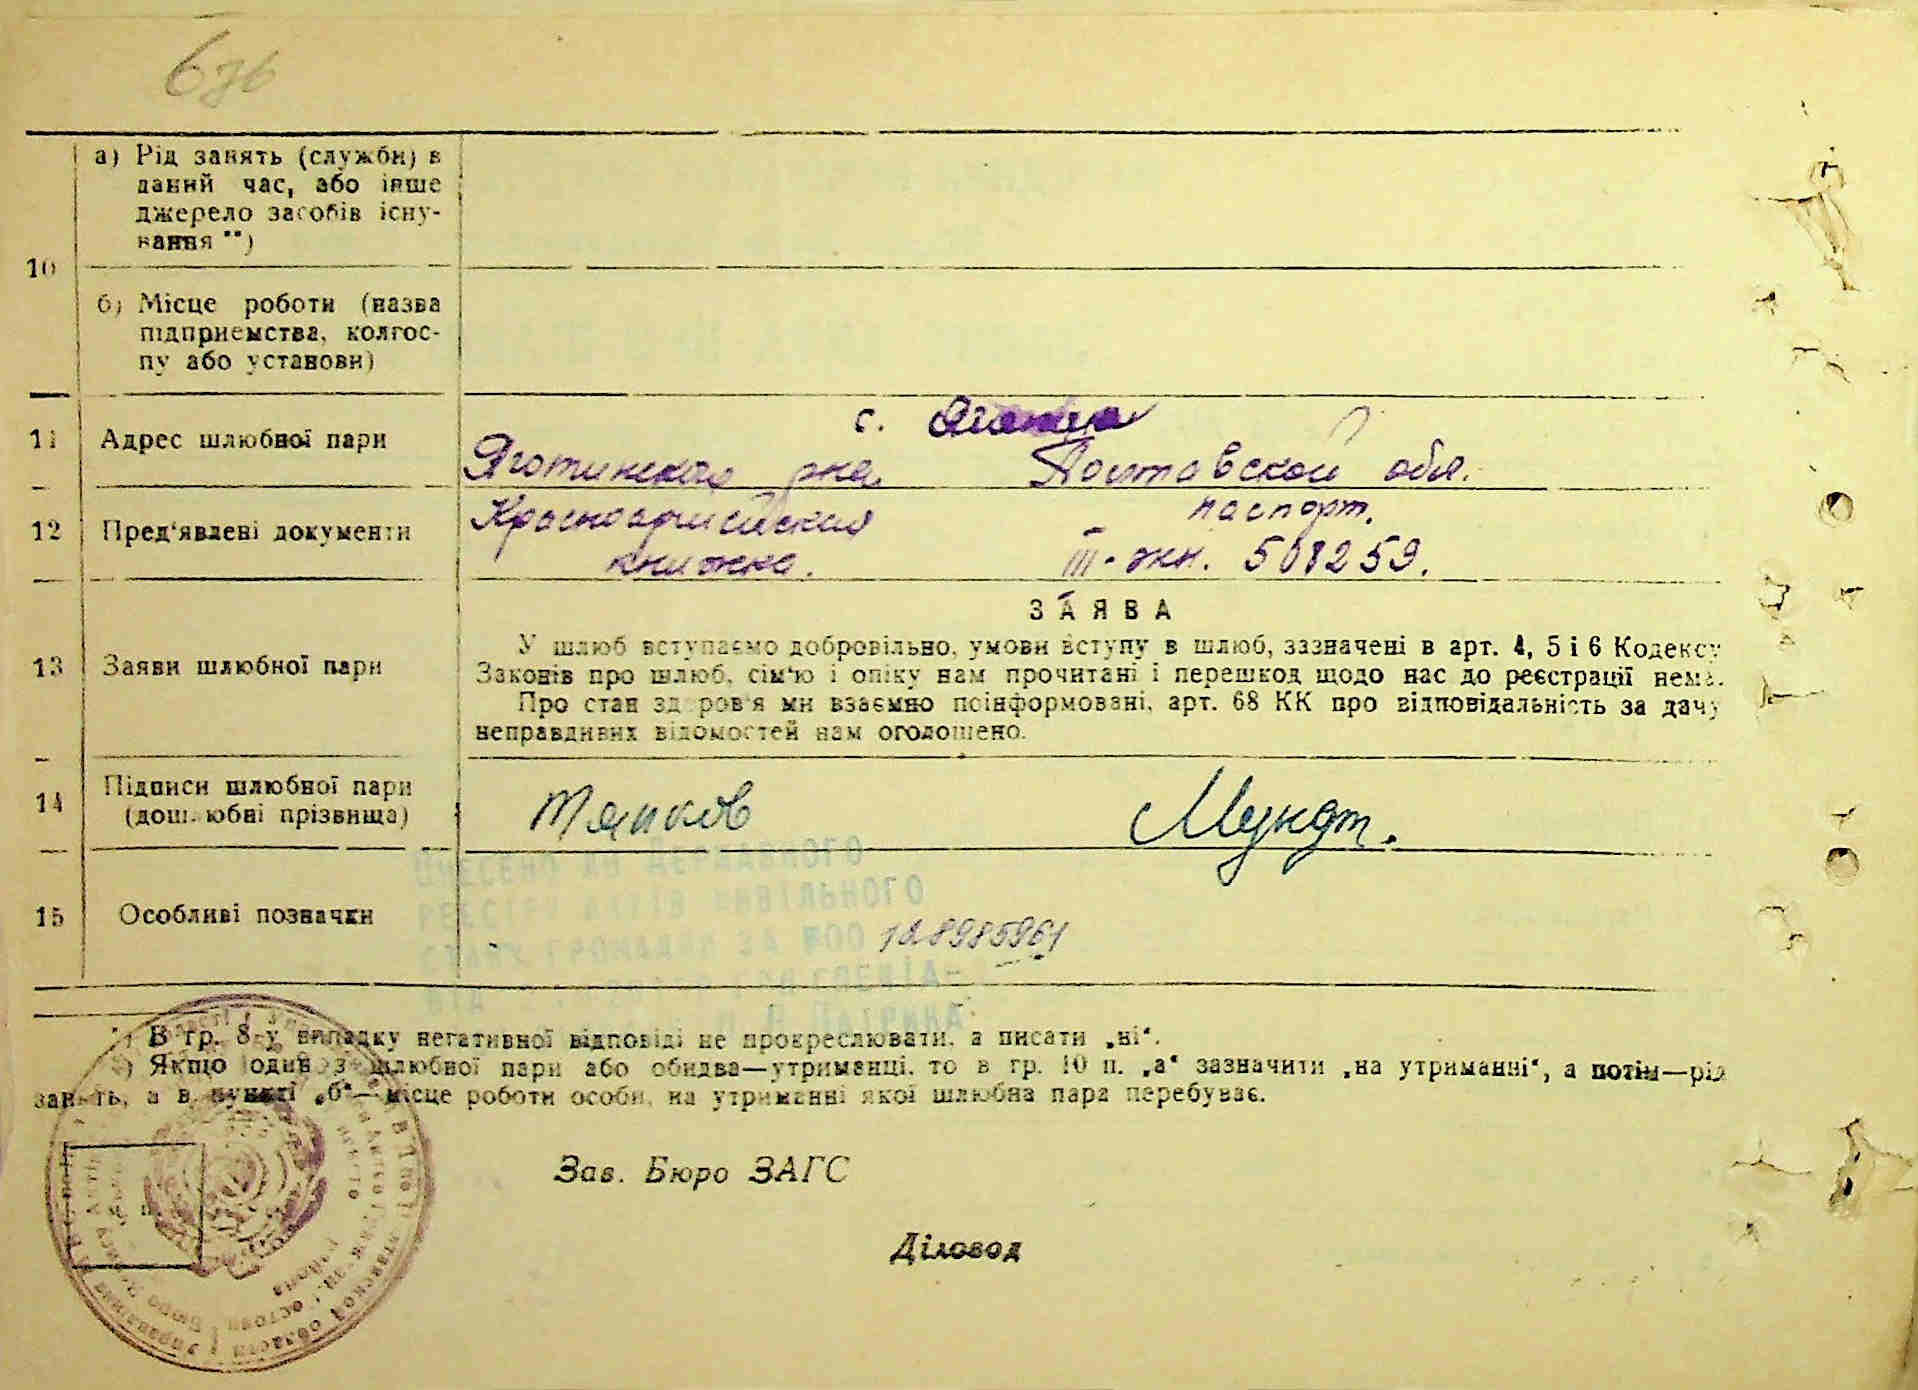 676
10
а) Рід занять (служби) в
даний час, або інше
джерело засобів існу-
вання **)
б) Місце роботи (назва
підприємства, колгос-
пу або установи)
11 Адрес шлюбної пари
с.
Яготинского рна Полтавской обл.
12 Пред'явлені документи
Красноармейская паспорт.
книжка. III-жн. 508259.
13 Заяви шлюбної пари
ЗАЯВА
У шлюб вступаємо добровільно, умови вступу в шлюб, зазначені в арт. 4, 5 і 6 Кодексу
Законів про шлюб, сім'ю і опіку нам прочитані і перешкод щодо нас до реєстрації нема.
Про стан здоров'я ми взаємно поінформовані, арт. 68 КК про відповідальність за дачу
неправдивих відомостей нам оголошено.
14 Підписи шлюбної пари
(дошлюбні прізвища)
Тяпков Мундт.
15 Особливі позначки
ВНЕСЕНО ДО ДЕРЖАВНОГО
РЕЄСТРУ АКТІВ ЦИВІЛЬНОГО
СТАНУ ГРОМАДЯН ЗА №00 128985961
*) В гр. 8-у випадку негативної відповіді не прокреслювати, а писати „ні“.
**) Якщо один з шлюбної пари або обидва—утриманці, то в гр. 10 п. „а“ зазначити „на утриманні“, а потім—рід
занять, а в пункті „б“—місце роботи особи, на утриманні якої шлюбна пара перебуває.
Зав. Бюро ЗАГС
Діловод